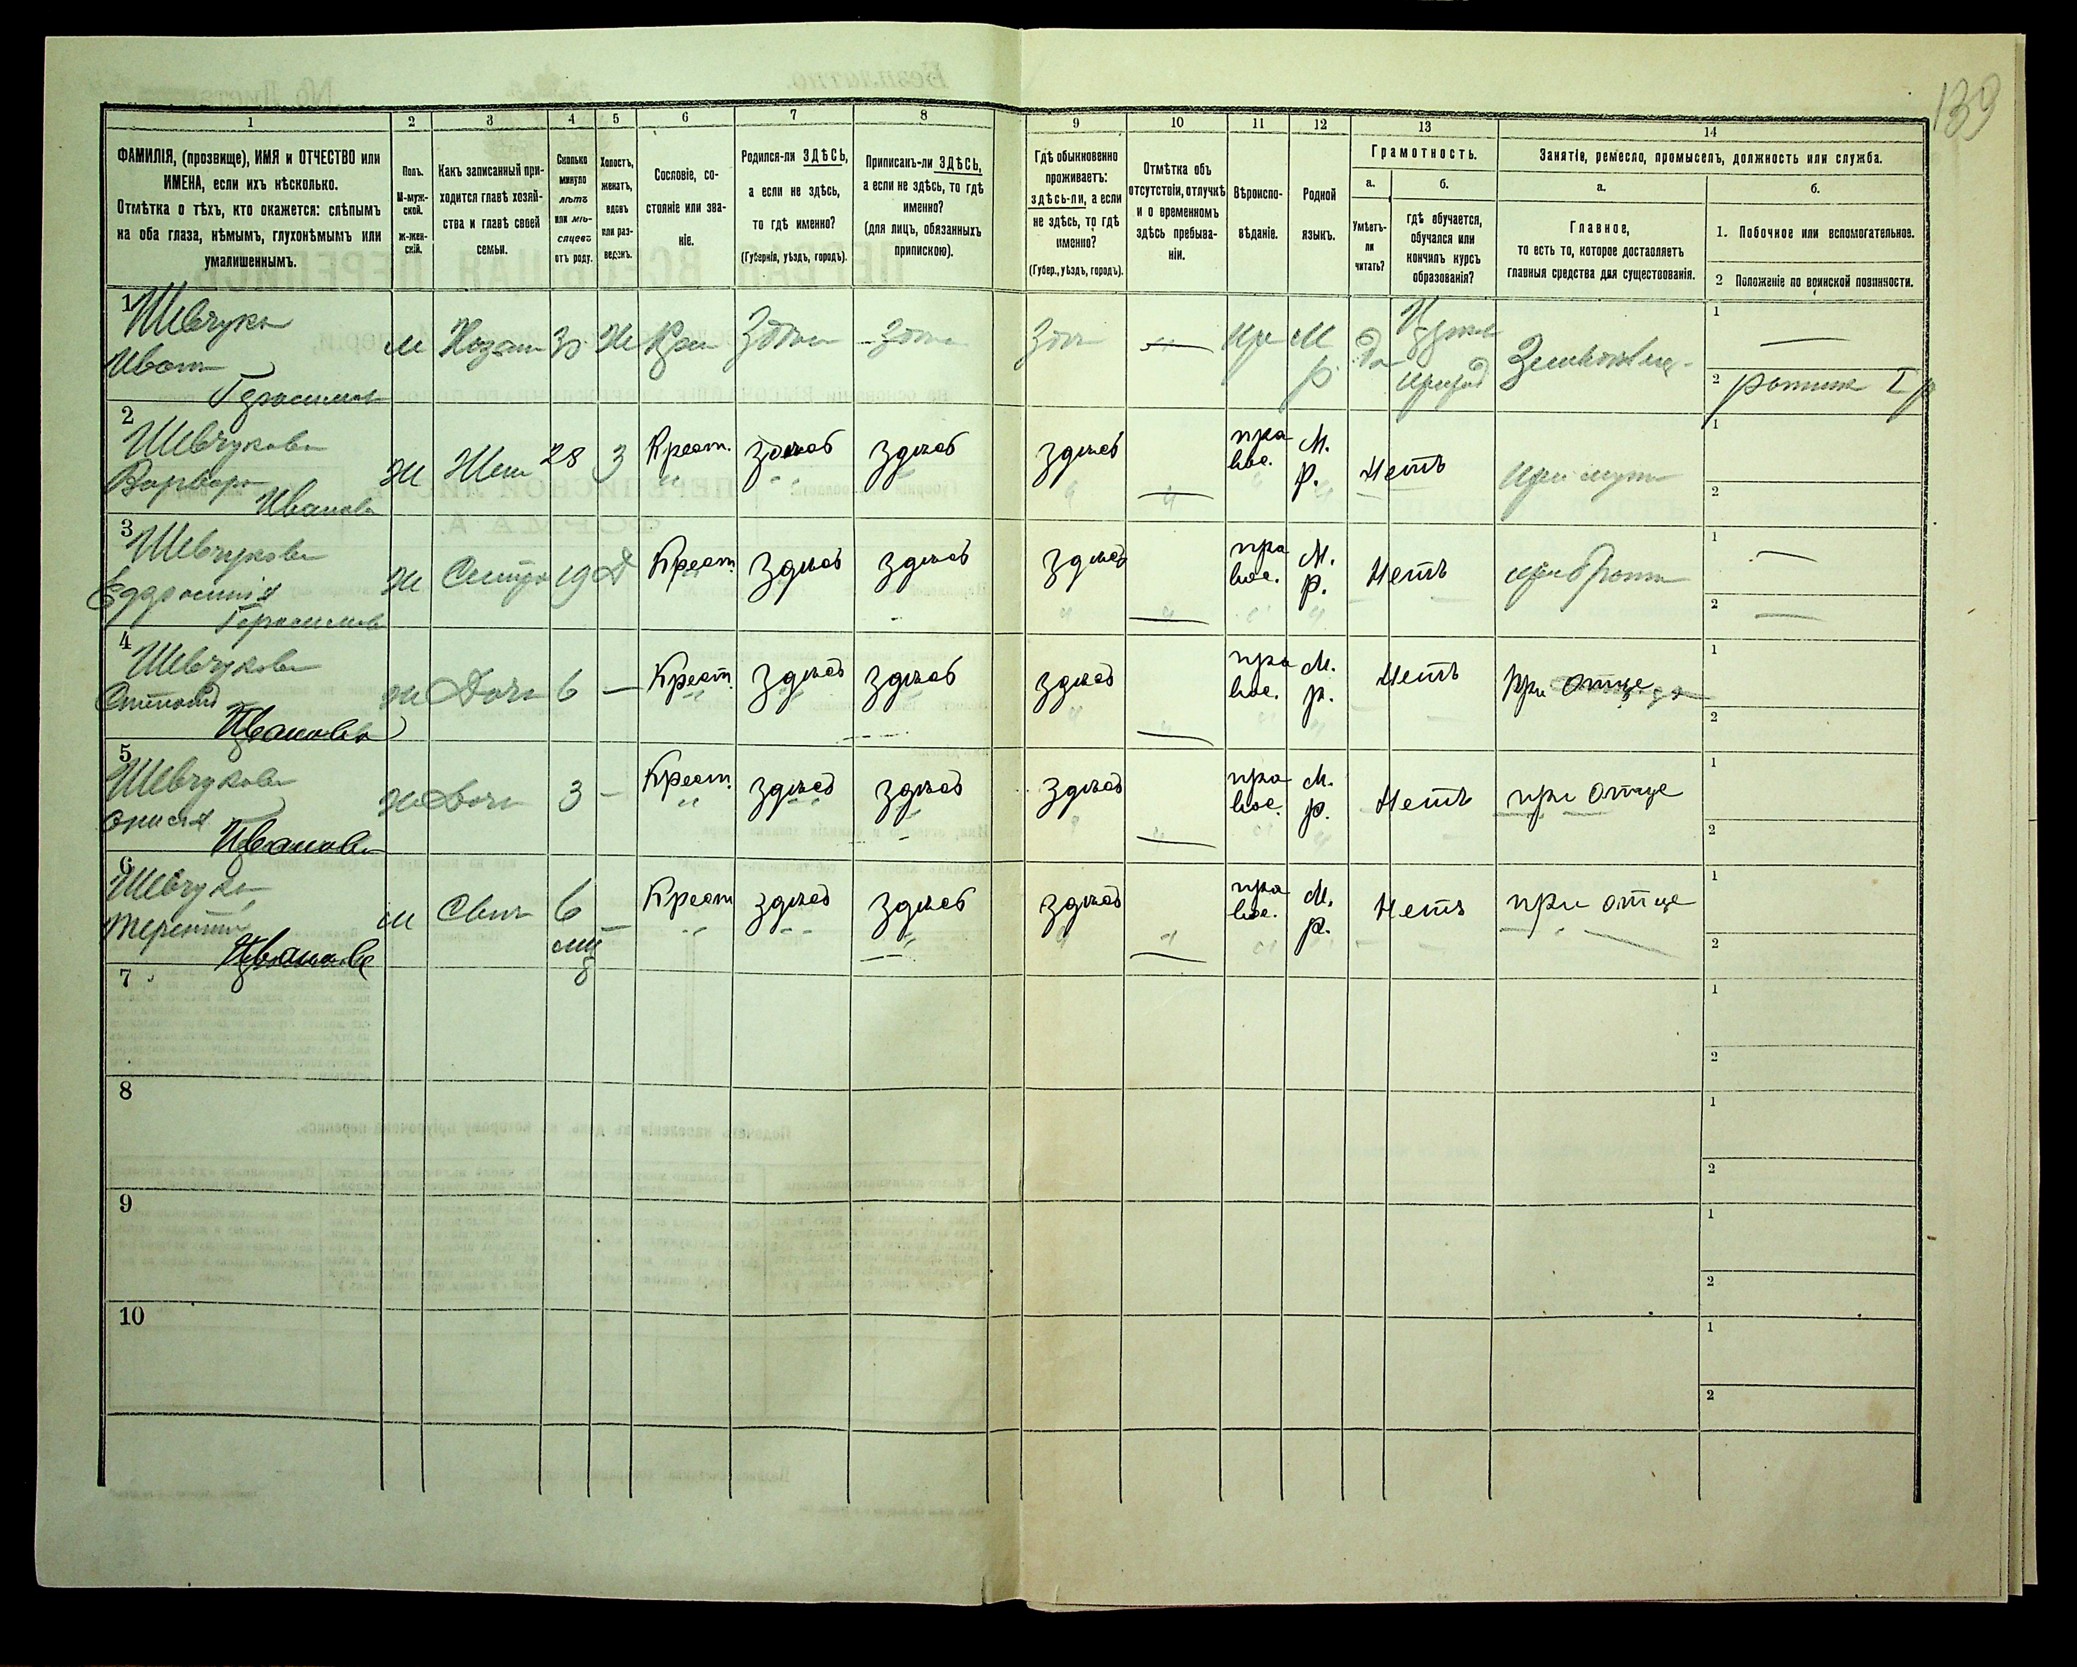 139
1
2
3
4
5
6
7
8
9
10
11
12
13
14
ФАМИЛІЯ, (прозвище), ИМЯ и ОТЧЕСТВО или
ИМЕНА, если ихъ нѣсколько.
Отмѣтка о тѣхъ, кто окажется: слѣпымъ
на оба глаза, нѣмымъ, глухонѣмымъ или
умалишеннымъ.
Полъ.
М-муж-
ской.
ж-жен-
скій.
Какъ записанный при-
ходится главѣ хозяй-
ства и главѣ своей
семьи.
Сколько
минуло
лѣтъ
или мѣ-
сяцевъ
отъ роду.
Холостъ,
женатъ,
вдовъ
или раз-
веденъ.
Сословіе, со-
стояніе или зва-
ніе.
Родился-ли ЗДѢСЬ,
а если не здѣсь,
то гдѣ именно?
(Губернія, уѣздъ, городъ).
Приписанъ-ли ЗДѢСЬ,
а если не здѣсь, то гдѣ
именно?
(для лицъ, обязанныхъ
припискою).
Гдѣ обыкновенно
проживаетъ:
здѣсь-ли, а если
не здѣсь, то гдѣ
именно?
(Губер., уѣздъ, городъ).
Отмѣтка объ
отсутствіи, отлучкѣ
и о временномъ
здѣсь пребыва-
ніи.
Вѣроиспо-
вѣданіе.
Родной
языкъ.
Грамотность.
а.
Умѣетъ-
ли
читать?
б.
гдѣ обучается,
обучался или
кончилъ курсъ
образованія?
Занятіе, ремесло, промыселъ, должность или служба.
а.
Главное,
то есть то, которое доставляетъ
главныя средства для существованія.
б.
1. Побочное или вспомогательное.
2 Положеніе по воинской повинности.
1 Шевчукъ м 1
Иванъ да 2
2 Шевчукова ж 28 З Крест. здѣсь здѣсь здѣсь пра М. Нетъ 1
Варвара вос. р. 2
Иванова
3 Шевчукова ж Сестра 19 Д Крест. здѣсь здѣсь здѣсь пра М. Нетъ при брате 1
вос. р. 2
4 Шевчукова ж Дочь 6 — Крест. здѣсь здѣсь здѣсь пра М. Нетъ При отце 1
вос. р. 2
Иванова
5 Шевчукова ж Дочь 3 — Крест. здѣсь здѣсь здѣсь пра М. Нетъ при отце 1
вос. р. 2
Иванова
6 Шевчукъ м Сынъ 6 — Крест здѣсь здѣсь здѣсь пра М. Нетъ при отце 1
Терентій вос. р. 2
7 1
2
8 1
2
9 1
2
10 1
2